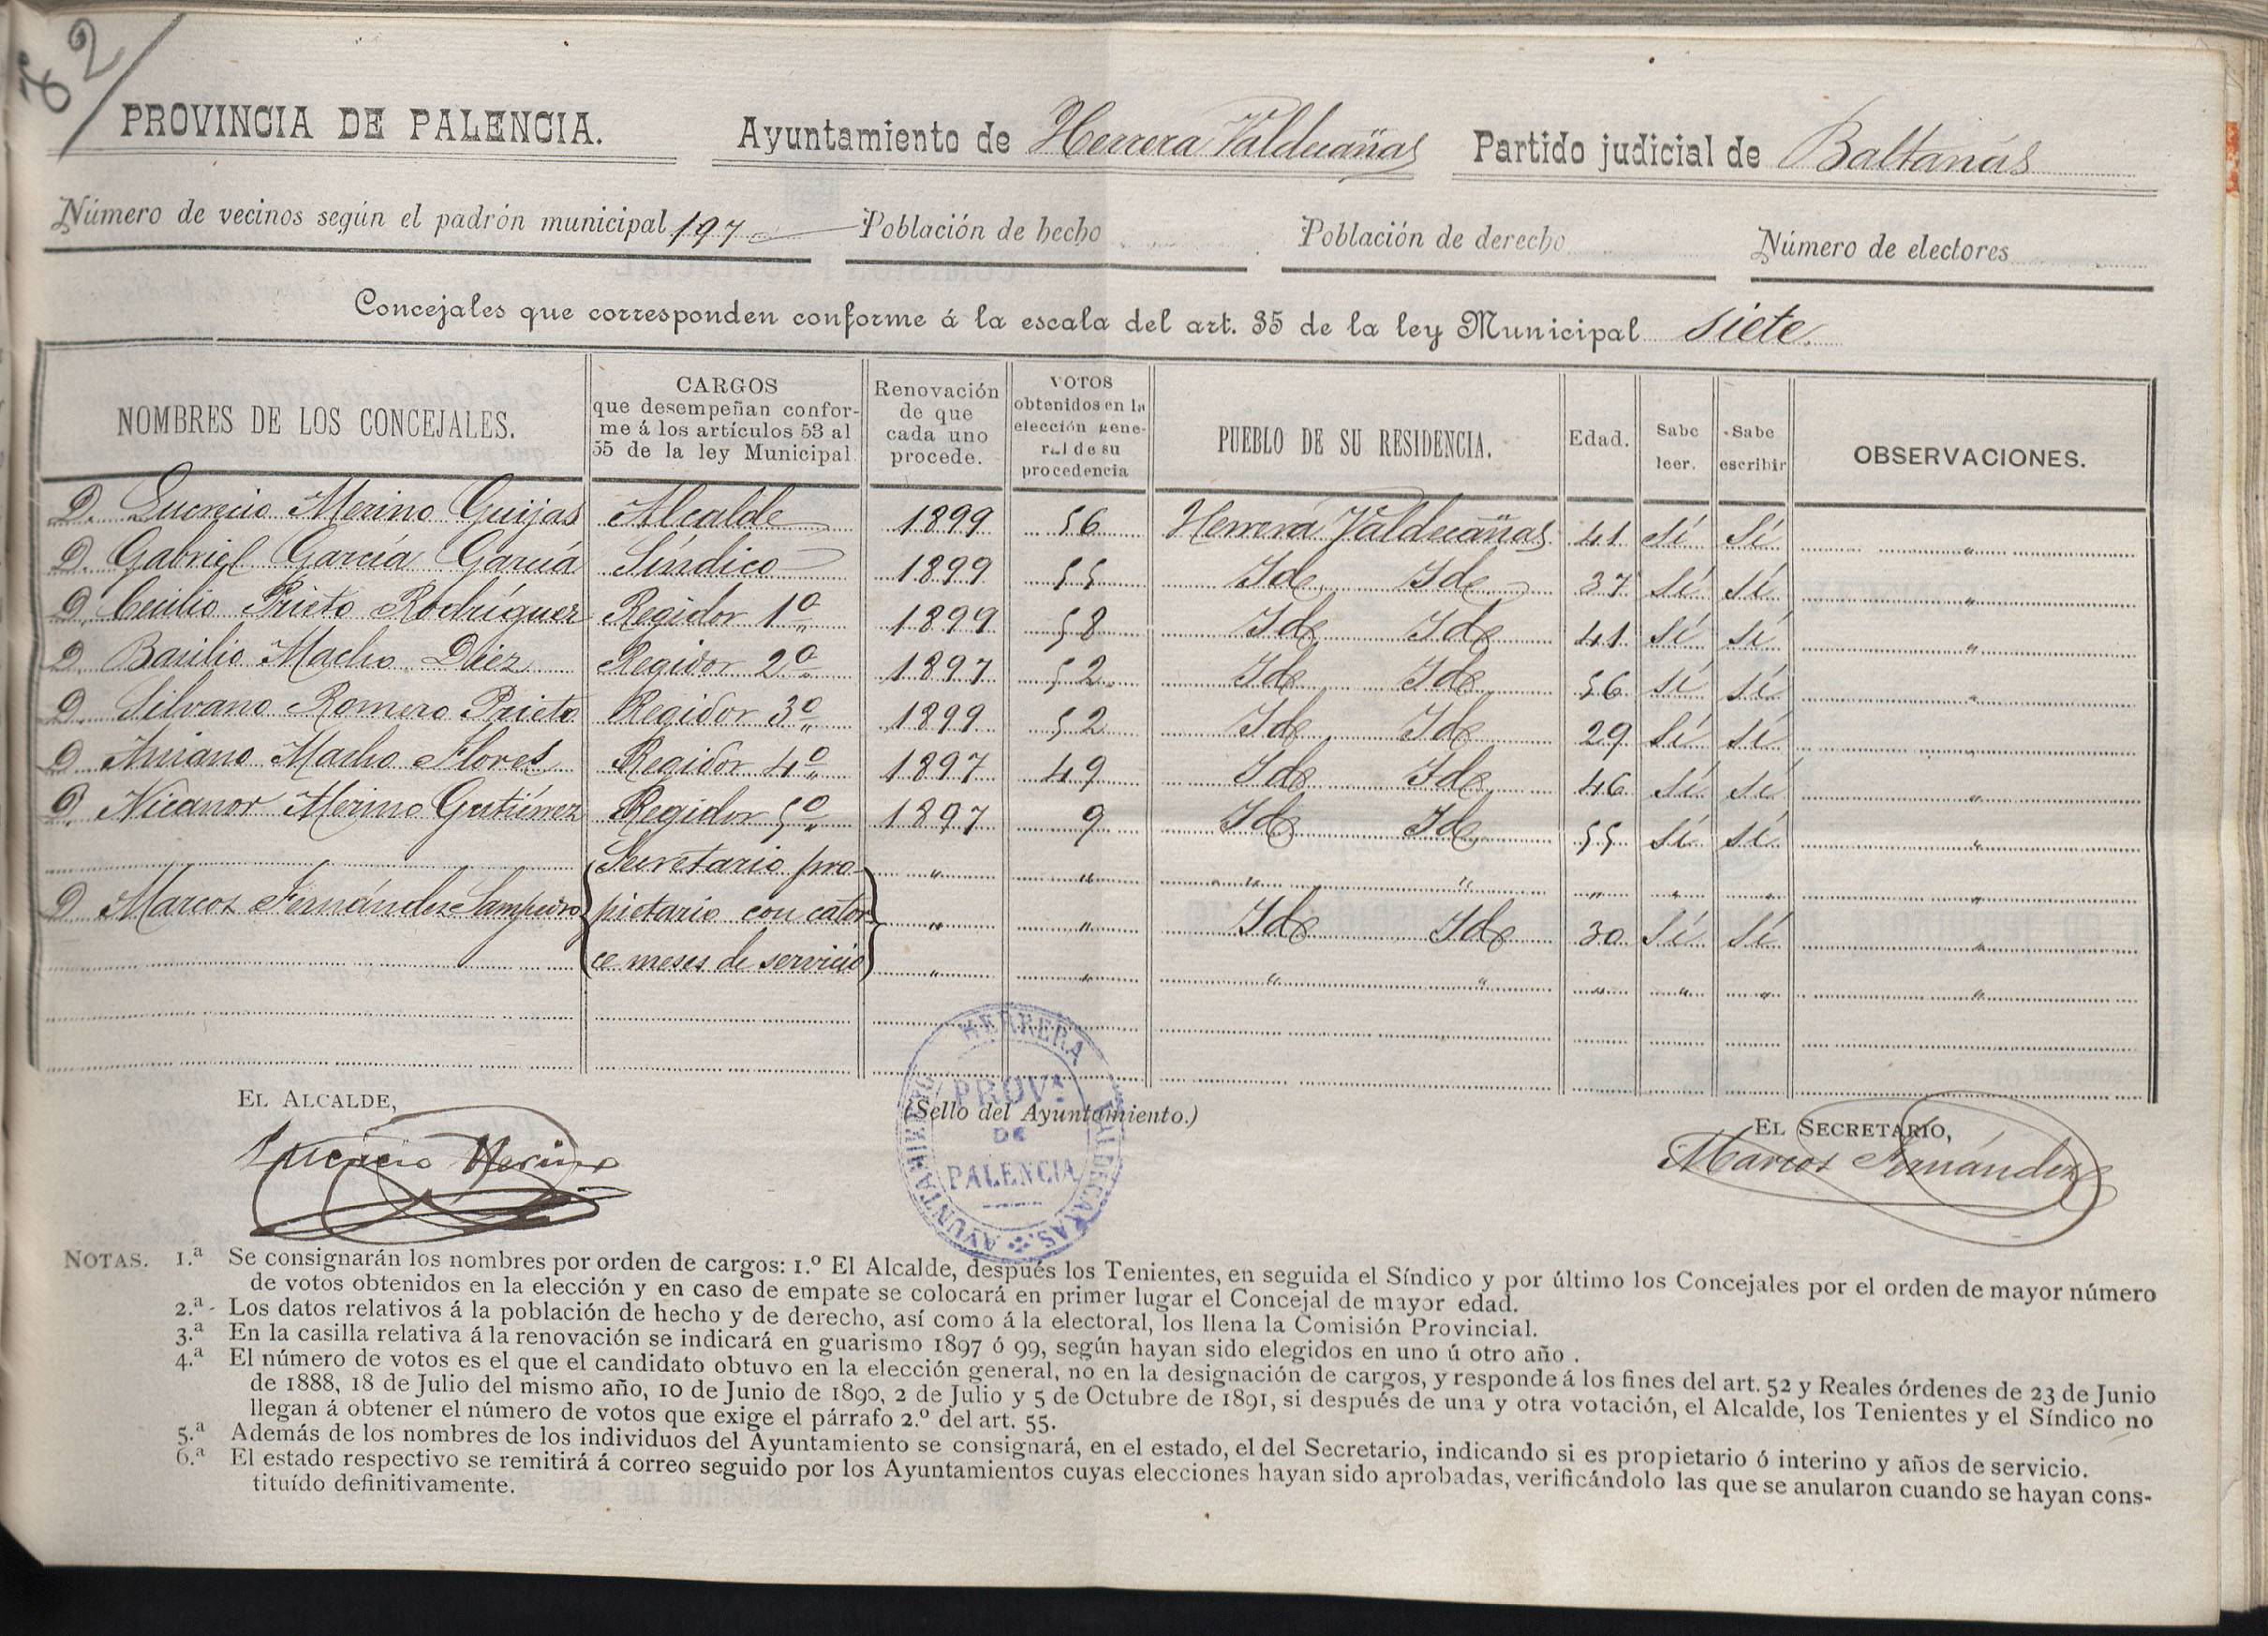 82
PROVINCIA DE PALENCIA. Ayuntamiento de Herrera Valdecañas Partido judicial de Baltanás
Número de vecinos según el padrón municipal 197 Población de hecho Población de derecho Número de electores
Concejales que corresponden conforme á la escala del art. 35 de la ley Municipal siete.
NOMBRES DE LOS CONCEJALES. CARGOS que desempeñan conforme á los artículos 53 al 55 de la ley Municipal Renovación de que cada uno procede. VOTOS obtenidos en la elección general de su procedencia PUEBLO DE SU RESIDENCIA. Edad. Sabe leer. Sabe escribir OBSERVACIONES.
D. Lucrecio Merino Guijas Alcalde 1899 56 Herrera Valdecañas 41 Sí Sí "
D. Gabriel García García Síndico 1899 55 Id. Id. 37 Sí Sí "
D. Cecilio Prieto Rodríguez Regidor 1º 1899 58 Id. Id. 41 Sí Sí "
D. Basilio Macho Diez Regidor 2º 1897 52 Id. Id. 56 Sí Sí "
D. Silvano Romero Prieto Regidor 3º 1899 52 Id. Id. 29 Sí Sí "
D. Aniano Macho Flores Regidor 4º 1897 49 Id. Id. 46 Sí Sí "
D. Nicanor Merino Gutiérrez Regidor 5º 1897 9 Id. Id. 55 Sí Sí "
Secretario pro- " " " " " " " "
D. Marcos Fernández Sampedro pietario con cator " " Id. Id. 30 Sí Sí "
ce meses de servicio " " " " " " " "
EL ALCALDE,
Lucrecio Merino
(Sello del Ayuntamiento.)
AYUNTAMIENTO HERRERA VALDECAÑAS.
PROVª
DE
PALENCIA
EL SECRETARIO,
Marcos Fernández
NOTAS. 1.ª Se consignarán los nombres por orden de cargos: 1.º El Alcalde, después los Tenientes, en seguida el Síndico y por último los Concejales por el orden de mayor número
de votos obtenidos en la elección y en caso de empate se colocará en primer lugar el Concejal de mayor edad.
2.ª Los datos relativos á la población de hecho y de derecho, así como á la electoral, los llena la Comisión Provincial.
3.ª En la casilla relativa á la renovación se indicará en guarismo 1897 ó 99, según hayan sido elegidos en uno ú otro año .
4.ª El número de votos es el que el candidato obtuvo en la elección general, no en la designación de cargos, y responde á los fines del art. 52 y Reales órdenes de 23 de Junio
de 1888, 18 de Julio del mismo año, 10 de Junio de 1890, 2 de Julio y 5 de Octubre de 1891, si después de una y otra votación, el Alcalde, los Tenientes y el Síndico no
llegan á obtener el número de votos que exige el párrafo 2.º del art. 55.
5.ª Además de los nombres de los individuos del Ayuntamiento se consignará, en el estado, el del Secretario, indicando si es propietario ó interino y años de servicio.
6.ª El estado respectivo se remitirá á correo seguido por los Ayuntamientos cuyas elecciones hayan sido aprobadas, verificándolo las que se anularon cuando se hayan cons-
tituído definitivamente.